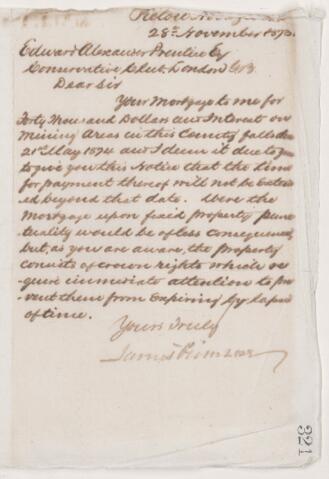 Pictou
28th November 1873
Edward Alexander Prentice Esq
Conservative Club, London G.B.
Dear Sir
Your Mortgage to me for
Forty Thousand Dollars and Interest on
Mining Areas in this County falls due
21st May 1874 and I deem it due to you
to give you this Notice that the time
for payment thereof will not be extend
ed beyond that date. Were the
Mortgage upon fixed property punc
tuality would be of less consequence,
but, as you are aware, the property
consists of crown rights which re
quire immediate attention to pre
vent them from expiring by lapse
of time.
Yours truly
James
321